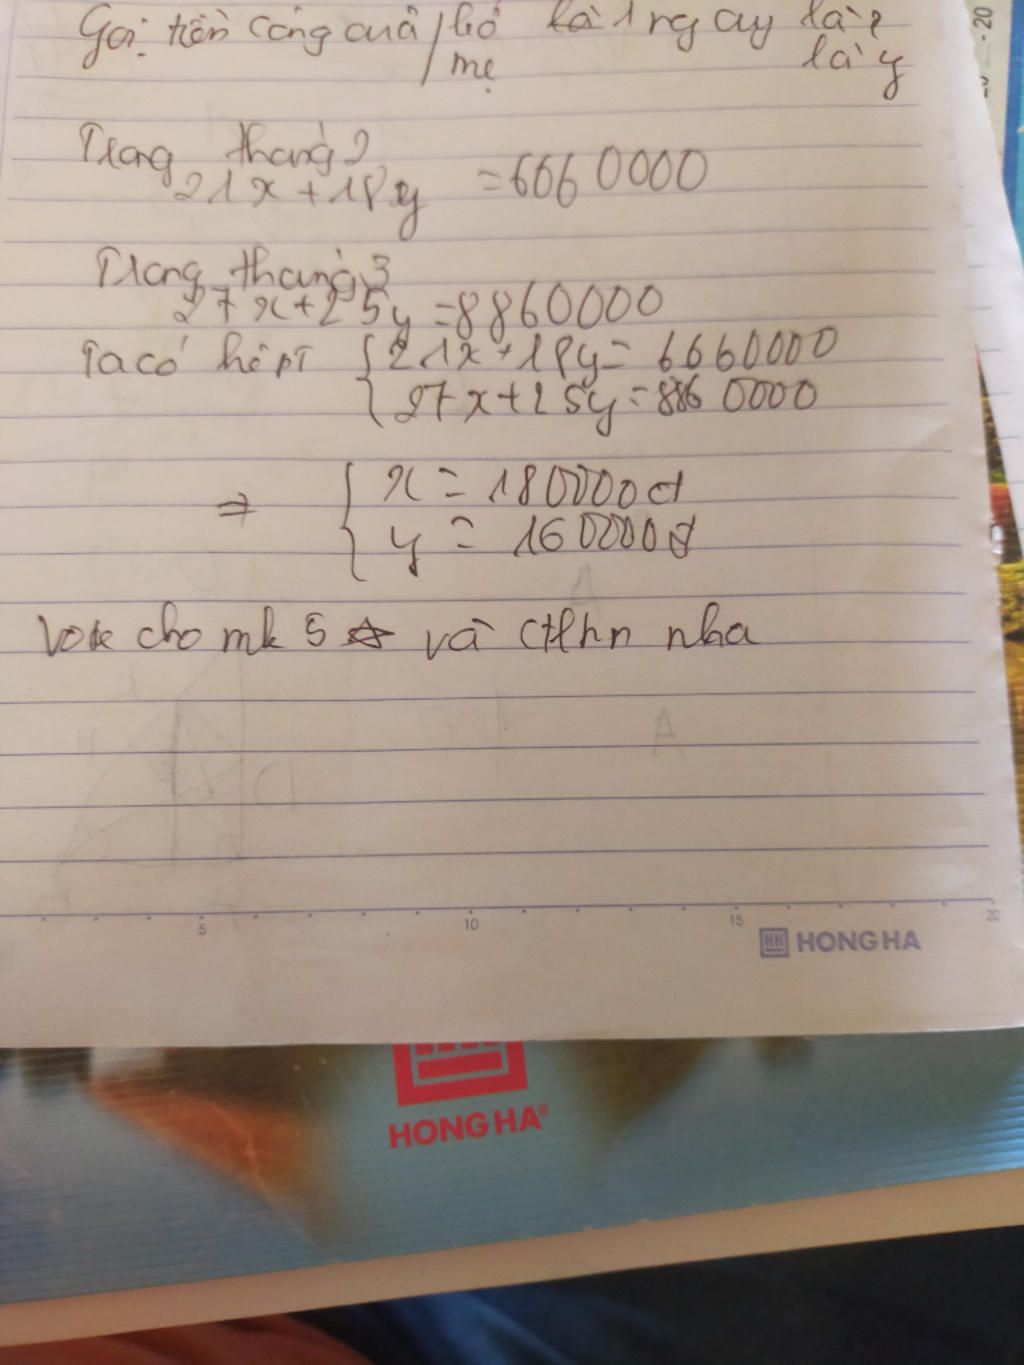 Gọi tiền công của bố là 1 ngày là x
mẹ là y
Trong tháng 2
21x + 18y = 6660000
Trong tháng 3
27x + 25y = 8860000
Ta có hệ PT { 21x + 18y = 6660000
27x + 25y = 8860000
⇒ { x = 180000đ
y = 160000đ
Vote cho mk 5 ☆ và ctlhn nha
5 10 15 20
HONG HA
HONG HA®
- 20